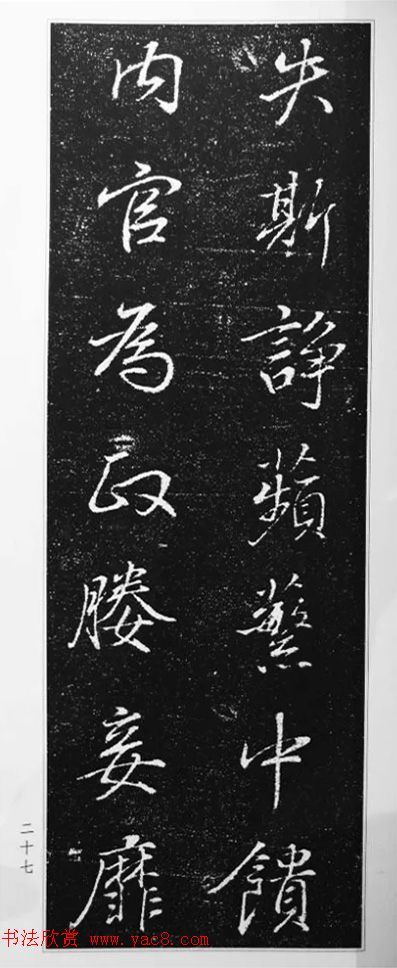 失斯諍蘋蘩中饋
內官為政媵妾靡
二十七
书法欣赏 www.yac8.com